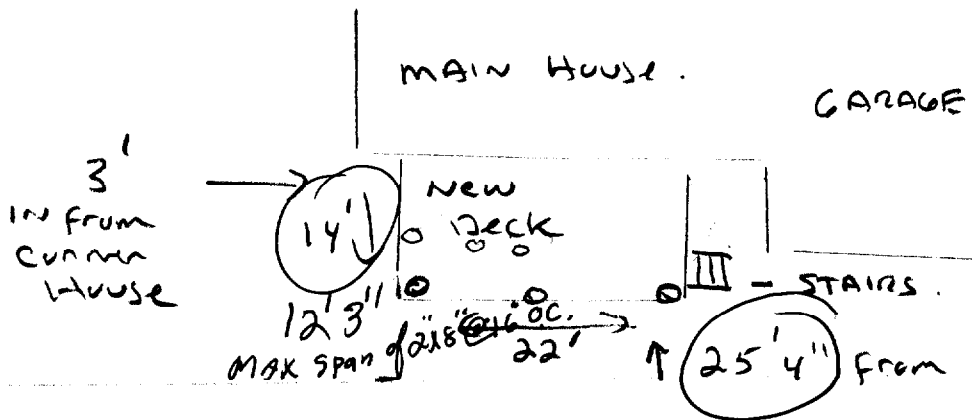 MAIN HOUSE.
GARAGE
3'
IN From
Corner
House
14'
New
Deck
STAIRS.
12' 3"
MAX Span of 2"x8" @ 16" O.C.
22'
25' 4" From